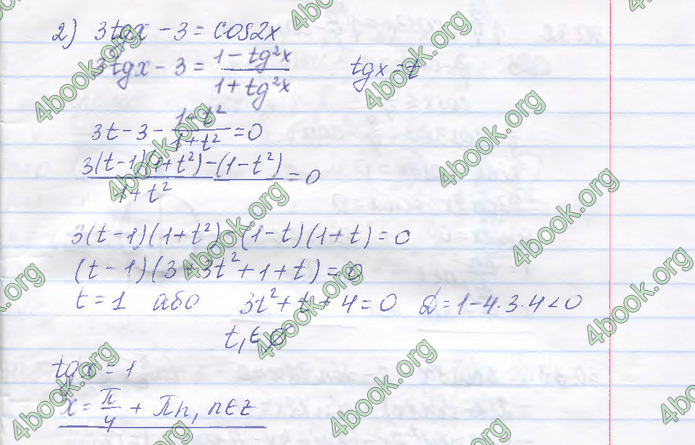 2) 3tgx - 3 = cos2x
3tgx - 3 = (1 - tg²x)/(1 + tg²x)   tgx = t
3t - 3 - (1 - t²)/(1 + t²) = 0
(3(t - 1)(1 + t²) - (1 - t²))/(1 + t²) = 0
3(t - 1)(1 + t²) - (1 - t)(1 + t) = 0
(t - 1)(3 + 3t² + 1 + t) = 0
t = 1 або 3t² + t + 4 = 0 D = 1 - 4·3·4 < 0
t₁ ∈ ∅
tgx = 1
x = π/4 + πn, n ∈ z
4book.org